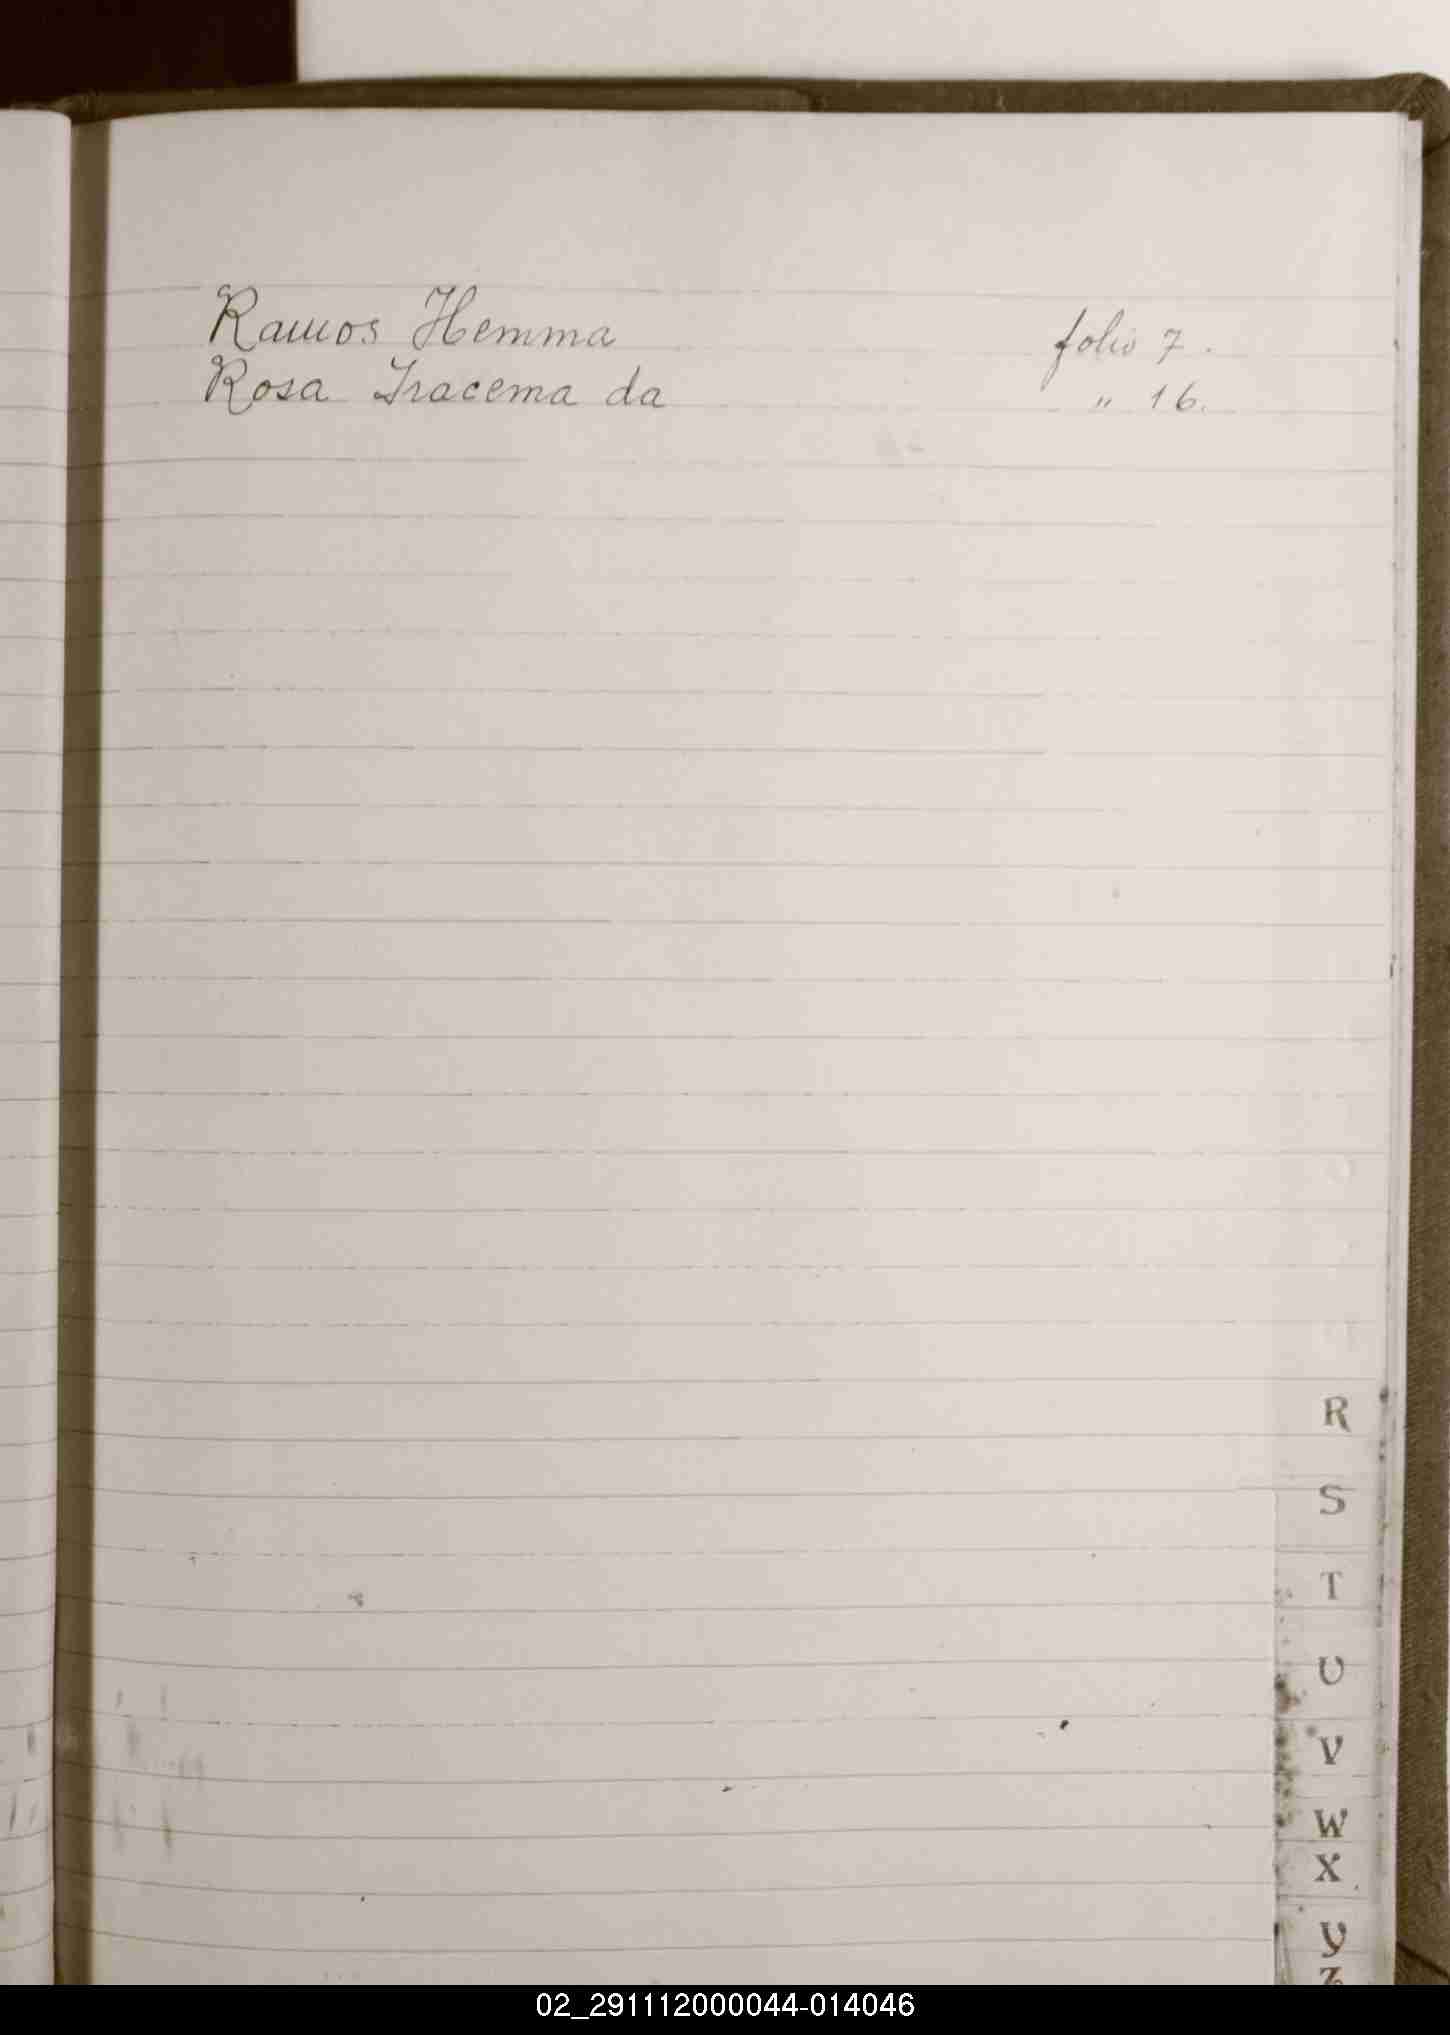 Ramos Hemma folio 7.
Rosa Iracema da " 16.
R
S
T
U
V
W
X
Y
Z
02_291112000044-014046